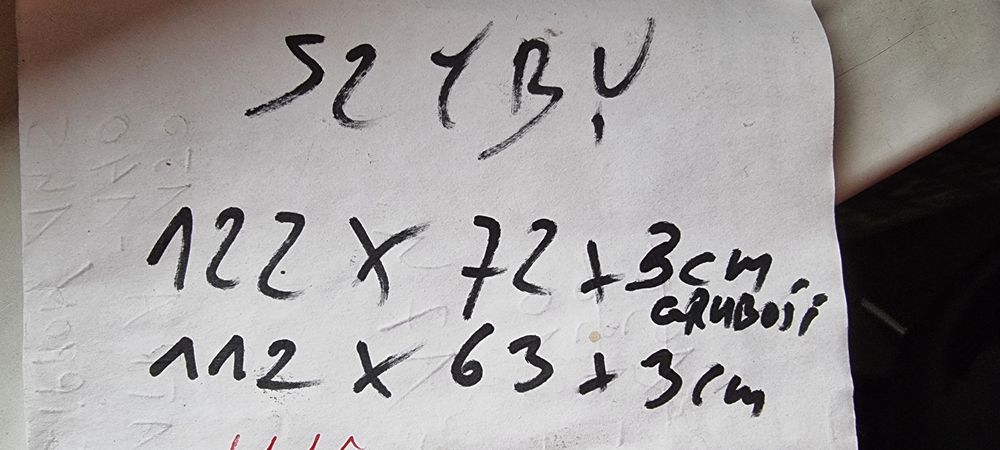 SZYBY
122 X 72 x 3cm
GRUBOŚĆ
112 x 63 x 3cm